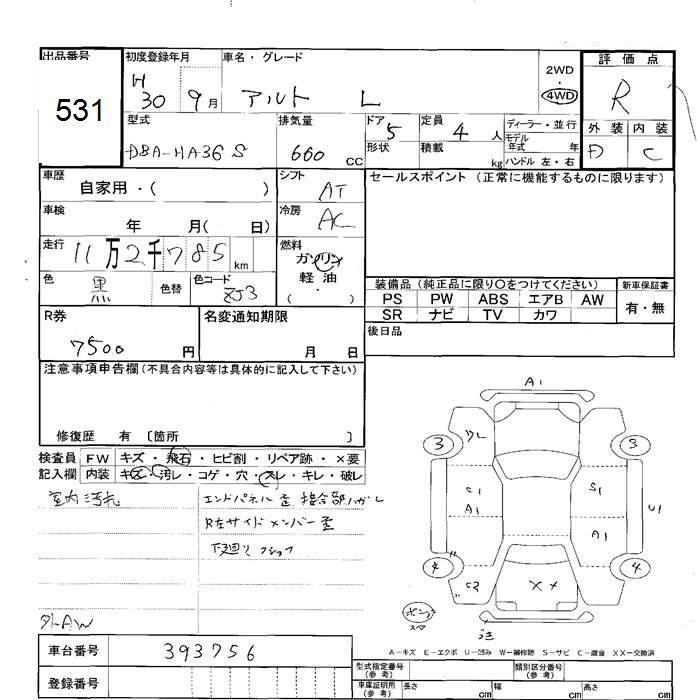 出品番号 初度登録年月 車名・グレード 2WD 評価点
531 H 30 9月 アルト L ・ 4WD R
型式 排気量 ドア 定員 ディーラー・並行 外装 内装
DBA-HA36S 660 CC 5 4 人 モデル年式 年 D C
形状 積載 kg ハンドル 左・右
車歴 自家用・( ) シフト AT セールスポイント (正常に機能するものに限ります)
車検 年 月( 日) 冷房 AC
走行 11万2千785 km 燃料 ガソリン
軽油
・
( )
色 黒 色替 色コード ZJ3
装備品 (純正品に限り○をつけてください) 新車保証書
PS PW ABS エアB AW 有・無
SR ナビ TV カワ
R券 7500 円 名変通知期限 月 日 後日品
注意事項申告欄 (不具合内容等は具体的に記入して下さい)
修復歴 有 〔箇所 〕
検査員 FW キズ・飛石・ヒビ割・リペア跡・×要
記入欄 内装 キズ・汚レ・コゲ・穴・スレ・キレ・破レ
室内汚れ エンドパネル歪 接合部ハガレ
R左サイドメンバー歪
下廻りフショク
外AW
A1
3 3
C1 S1
A1 A1 U1
4 4
C2 XX
スペア
注
A-キズ E-エクボ U-凹み W-補修跡 S-サビ C-腐食 XX-交換済
車台番号 393756
登録番号
型式指定番号 (参考) 類別区分番号 (参考)
車庫証明用 (参考) 長さ cm 幅 cm 高さ cm